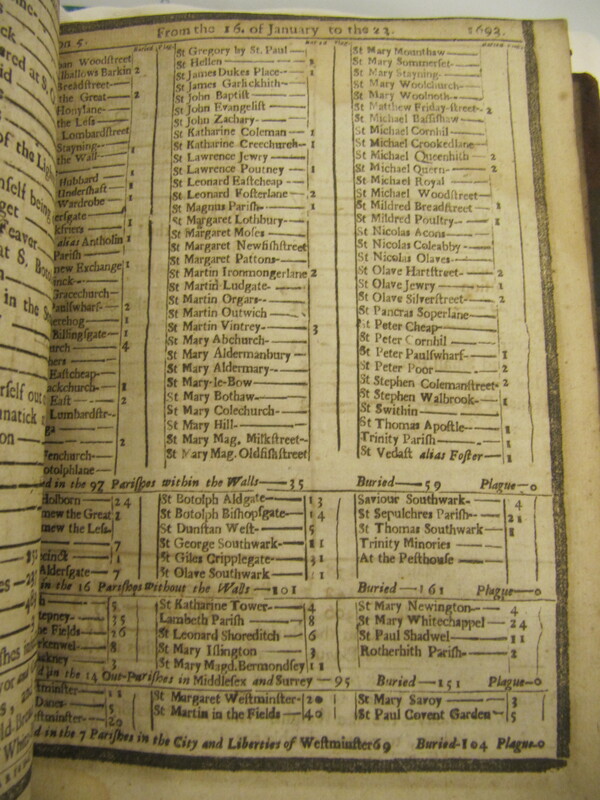 on 5. From the 16. of January to the 23. 1693.
an Woodstreet
llhallows Barkin 2
Breadstreet
the Great 2
Honylane
the Less
Lombardstreet
Stayning
the Wall 1
Hubbard 1
Undershaft 1
Wardrobe 1
ersgate
kfriers
alias Antholin 1
Parish
new Exchange 1
inck
Gracechurch
aulswharf 2
erehog 1
Billingsgate 1
urch 4
hers
Eastcheap
ackchurch 1
East 2
Lumbardstr
ga
2
Fenchurch
otolphlane
St Gregory by St. Paul
St Hellen 3
St James Dukes Place 1
St James Garlickhith
St John Baptist
St John Evangelist
St John Zachary
St Katharine Coleman 1
St Katharine Creechurch 1
St Lawrence Jewry
St Lawrence Poutney 1
St Leonard Eastcheap
St Leonard Fosterlane 2
St Magnus Parish 1
St Margaret Lothbury
St Margaret Moses
St Margaret Newfishstreet
St Margaret Pattons
St Martin Ironmongerlane 2
St Martin Ludgate
St Martin Orgars
St Martin Outwich
St Martin Vintrey 3
St Mary Abchurch
St Mary Aldermanbury
St Mary Aldermary
St Mary-le-Bow
St Mary Bothaw
St Mary Colechurch
St Mary Hill
St Mary Mag. Milkstreet
St Mary Mag. Oldfishstreet
St Mary Mounthaw
St Mary Sommerset
St Mary Stayning
St Mary Woolchurch
St Mary Woolnoth
St Matthew Friday-street 2
St Michael Bassishaw
St Michael Cornhil
St Michael Crookedlane
St Michael Queenhith 2
St Michael Quern 2
St Michael Royal
St Michael Woodstreet
St Mildred Breadstreet 1
St Mildred Poultry 1
St Nicolas Acons
St Nicolas Coleabby
St Nicolas Olaves
St Olave Hartstreet 2
St Olave Jewry 1
St Olave Silverstreet 2
St Pancras Soperlane
St Peter Cheap
St Peter Cornhil
St Peter Paulswharf 1
St Peter Poor 2
St Stephen Colemanstreet 2
St Stephen Walbrook 1
St Swithin
St Thomas Apostle 1
Trinity Parish
St Vedast alias Foster 1
ed in the 97 Parishes within the Walls 35 Buried 59 Plague 0
Holborn 24
mew the Great 1
mew the Less
7
ecinct 1
Aldersgate 7
St Botolph Aldgate 13
St Botolph Bishopsgate 14
St Dunstan West 5
St George Southwark 11
St Giles Cripplegate 31
St Olave Southwark 21
Saviour Southwark 4
St Sepulchres Parish 21
St Thomas Southwark 1
Trinity Minories
At the Pesthouse
in the 16 Parishes without the Walls 101 Buried 161 Plague 0
5
Stepney 35
he Fields 26
rkenwel 8
ackney 3
St Katharine Tower 4
Lambeth Parish 8
St Leonard Shoreditch 6
St Mary Islington 3
St Mary Magd. Bermondsey 11
St Mary Newington 4
St Mary Whitechappel 24
St Paul Shadwel 11
Rotherhith Parish 2
d in the 14 Out-Parishes in Middlesex and Surrey 95 Buried 151 Plague 0
tminster 11
Danes 5
estminster 20
St Margaret Westminster 20
St Martin in the Fields 40
St Mary Savoy 3
St Paul Covent Garden 5
d in the 7 Parishes in the City and Liberties of Westminster 69 Buried 104 Plague 0